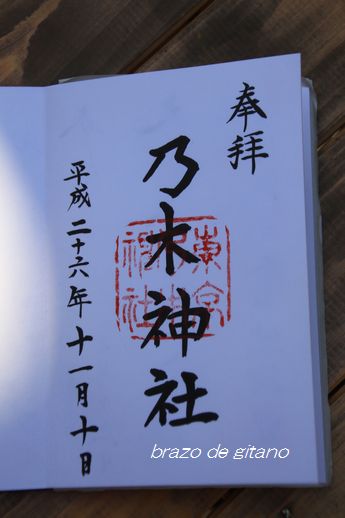 奉拝
乃木神社
平成二十六年十一月十日
brazo de gitano